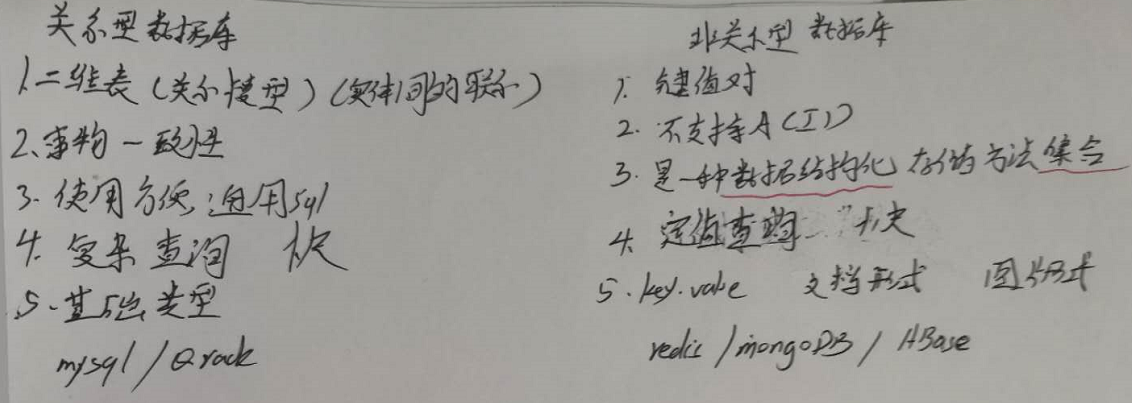 关系型数据库
1.二维表(关系模型)(实体间的联系)
2、事物一致性
3.使用方便,通用sql
4.复杂查询
5.基础类型
mysql/Orack
非关系型数据库
1.键值对
2.不支持A(I)
3.是一种数据结构化存储方法集合
4.定值查询
5.key.value 文档形式 图片形式
redis/mongoDB/HBase